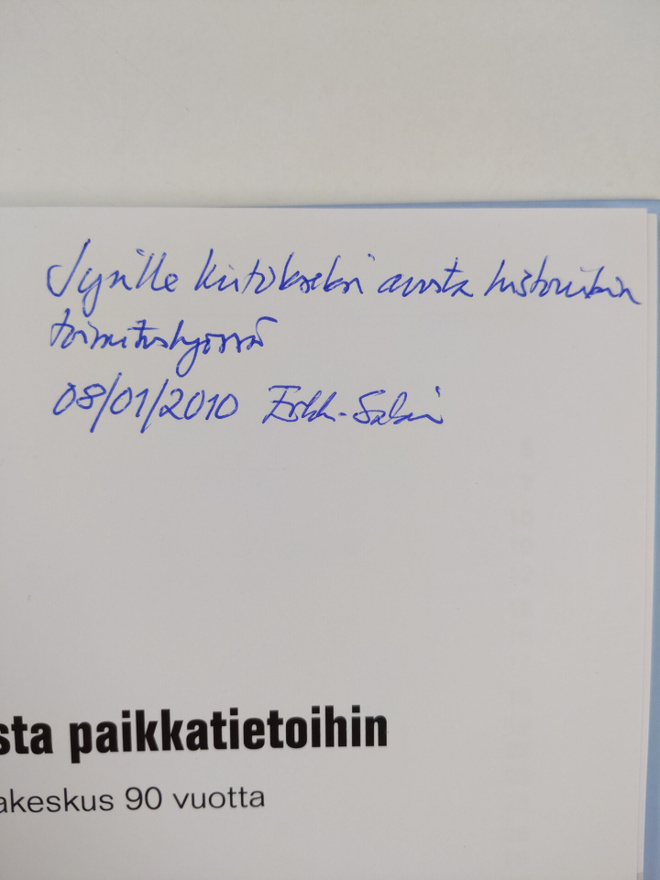 Jyrille kiitokseksi avusta historiikin
toimitustyössä
08/01/2010 Erkki-Sakari
sta paikkatietoihin
akeskus 90 vuotta